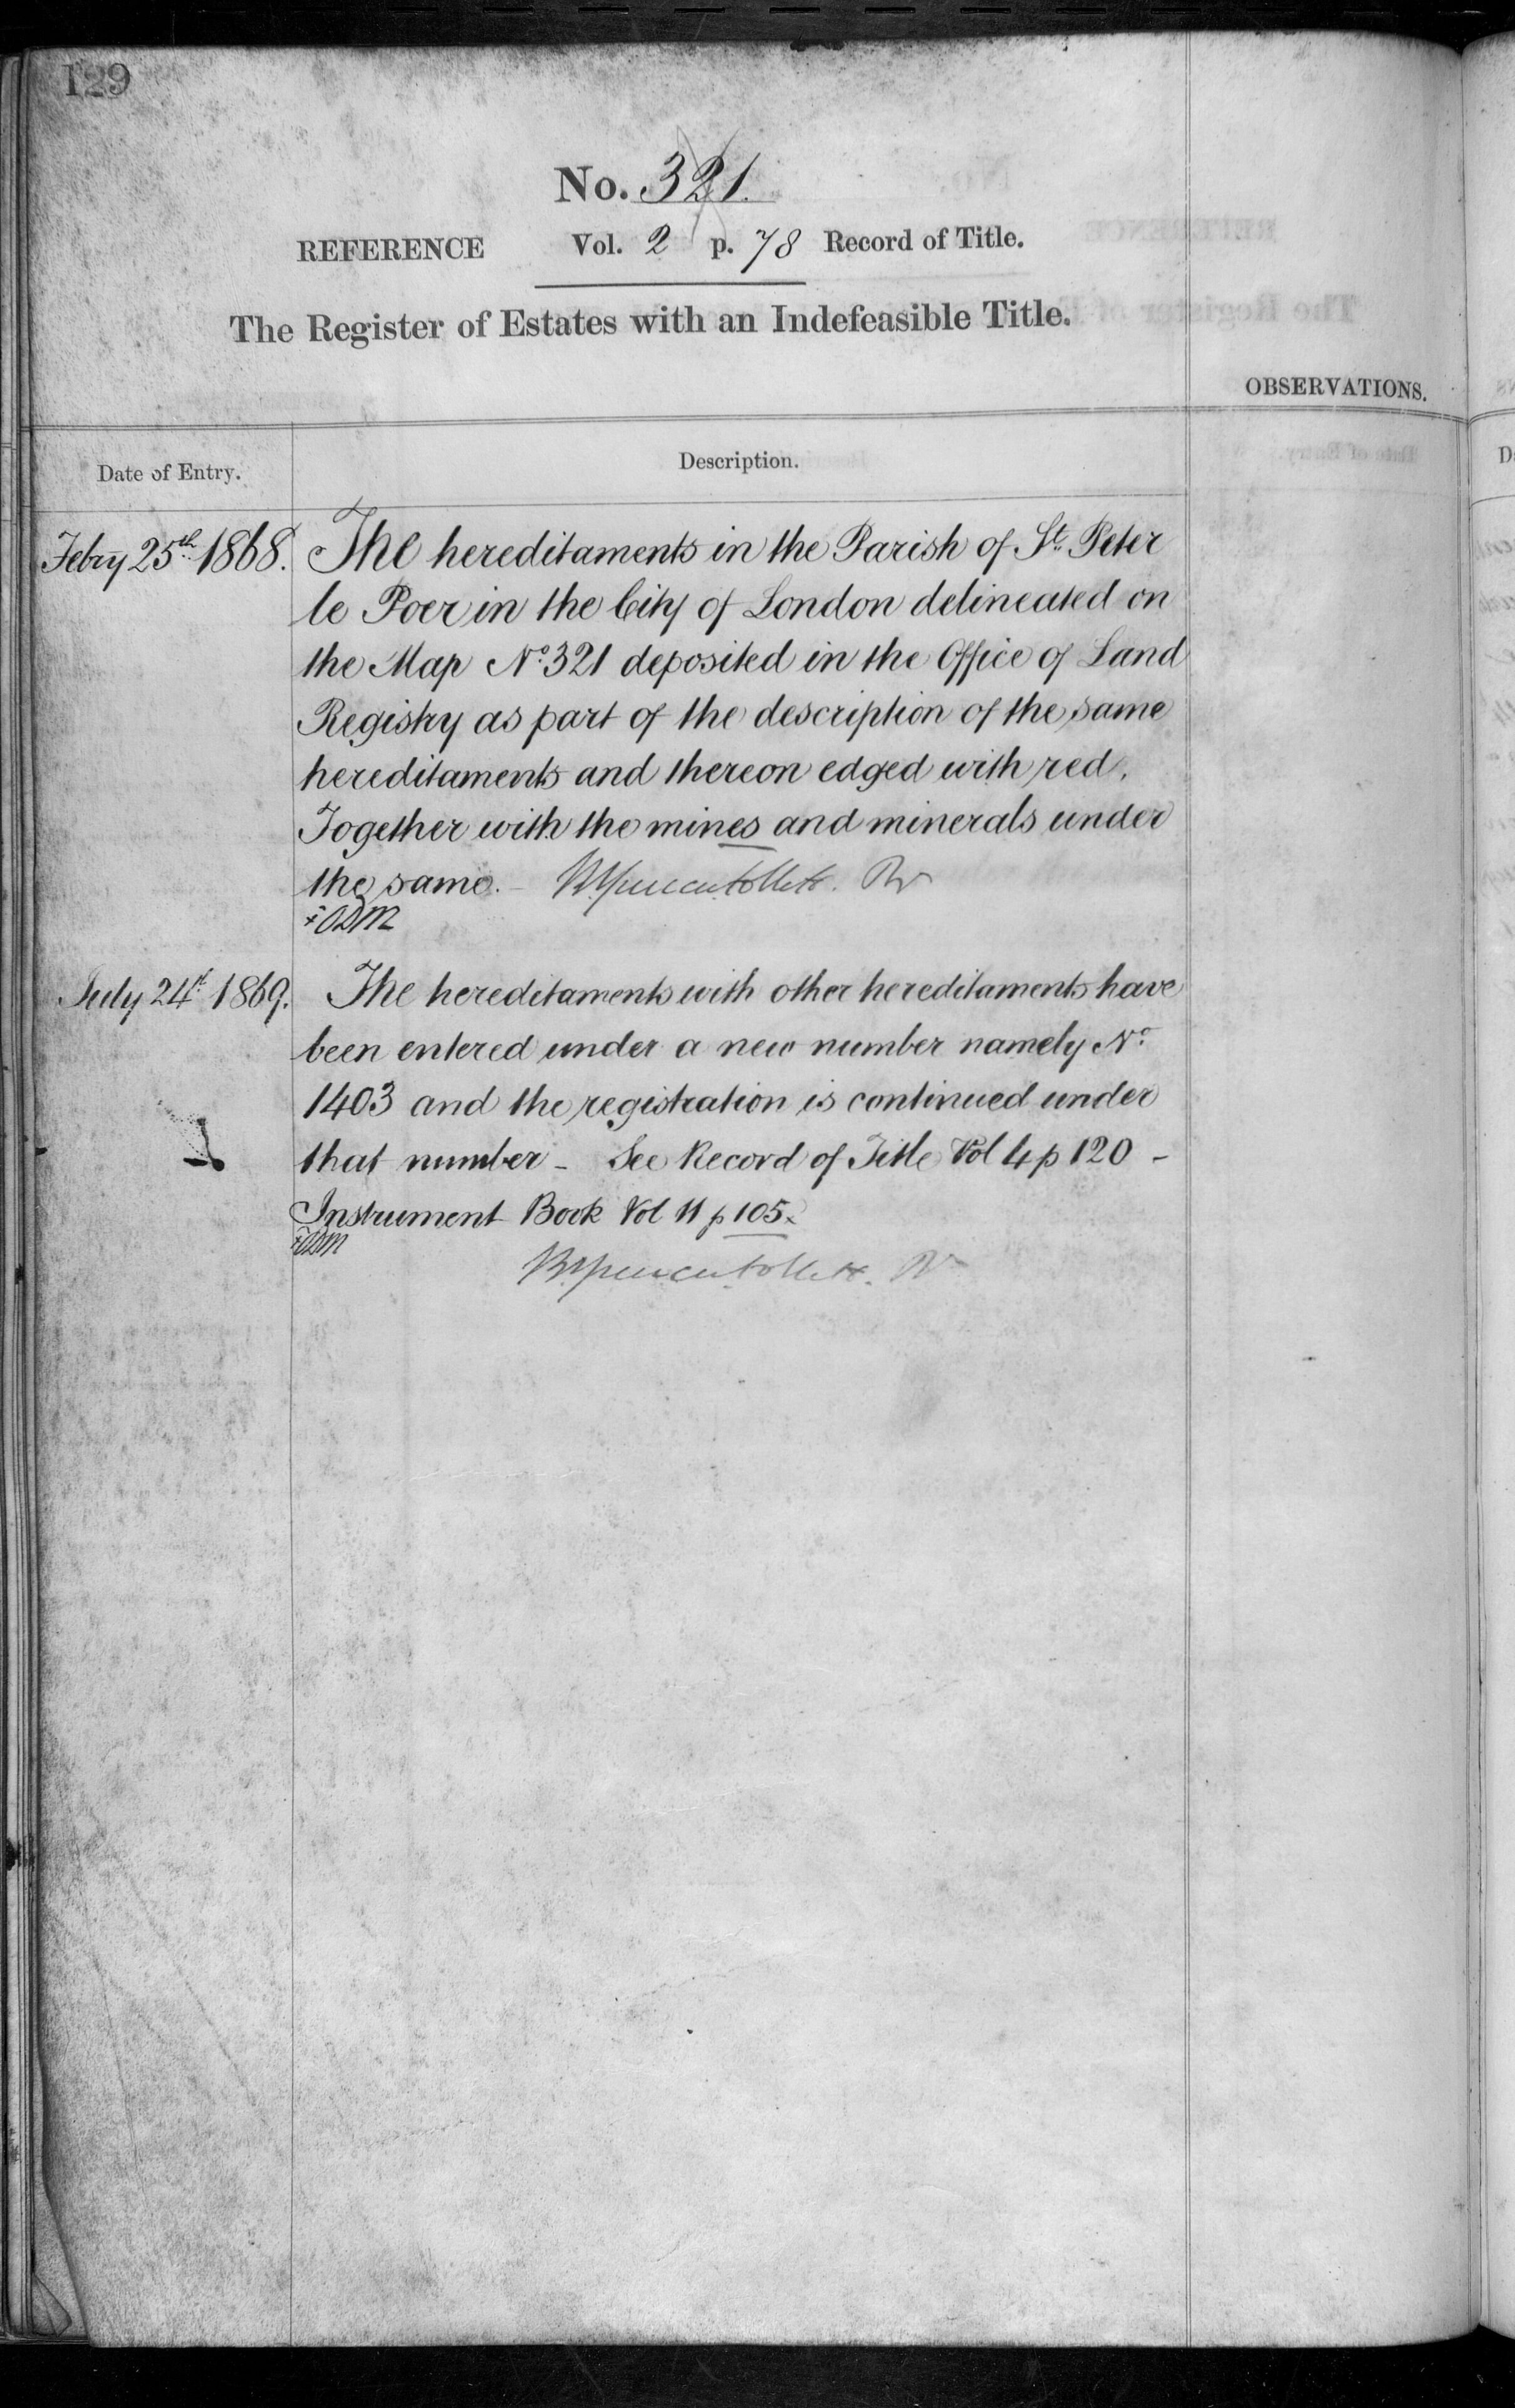 129
No. 321.
REFERENCE Vol. 2 p. 78 Record of Title.
The Register of Estates with an Indefeasible Title.
OBSERVATIONS.
Date of Entry. Description.
Febry 25th 1868. The hereditaments in the Parish of St. Peter
le Poer in the City of London delineated on
the Map No. 321 deposited in the Office of Land
Registry as part of the description of the same
hereditaments and thereon edged with red.
Together with the mines and minerals under
the same. –
July 24th 1869. The hereditaments with other hereditaments have
been entered under a new number namely No.
1403 and the registration is continued under
that number – See Record of Title Vol 4 p 120 –
Instrument Book Vol 11 p 105.